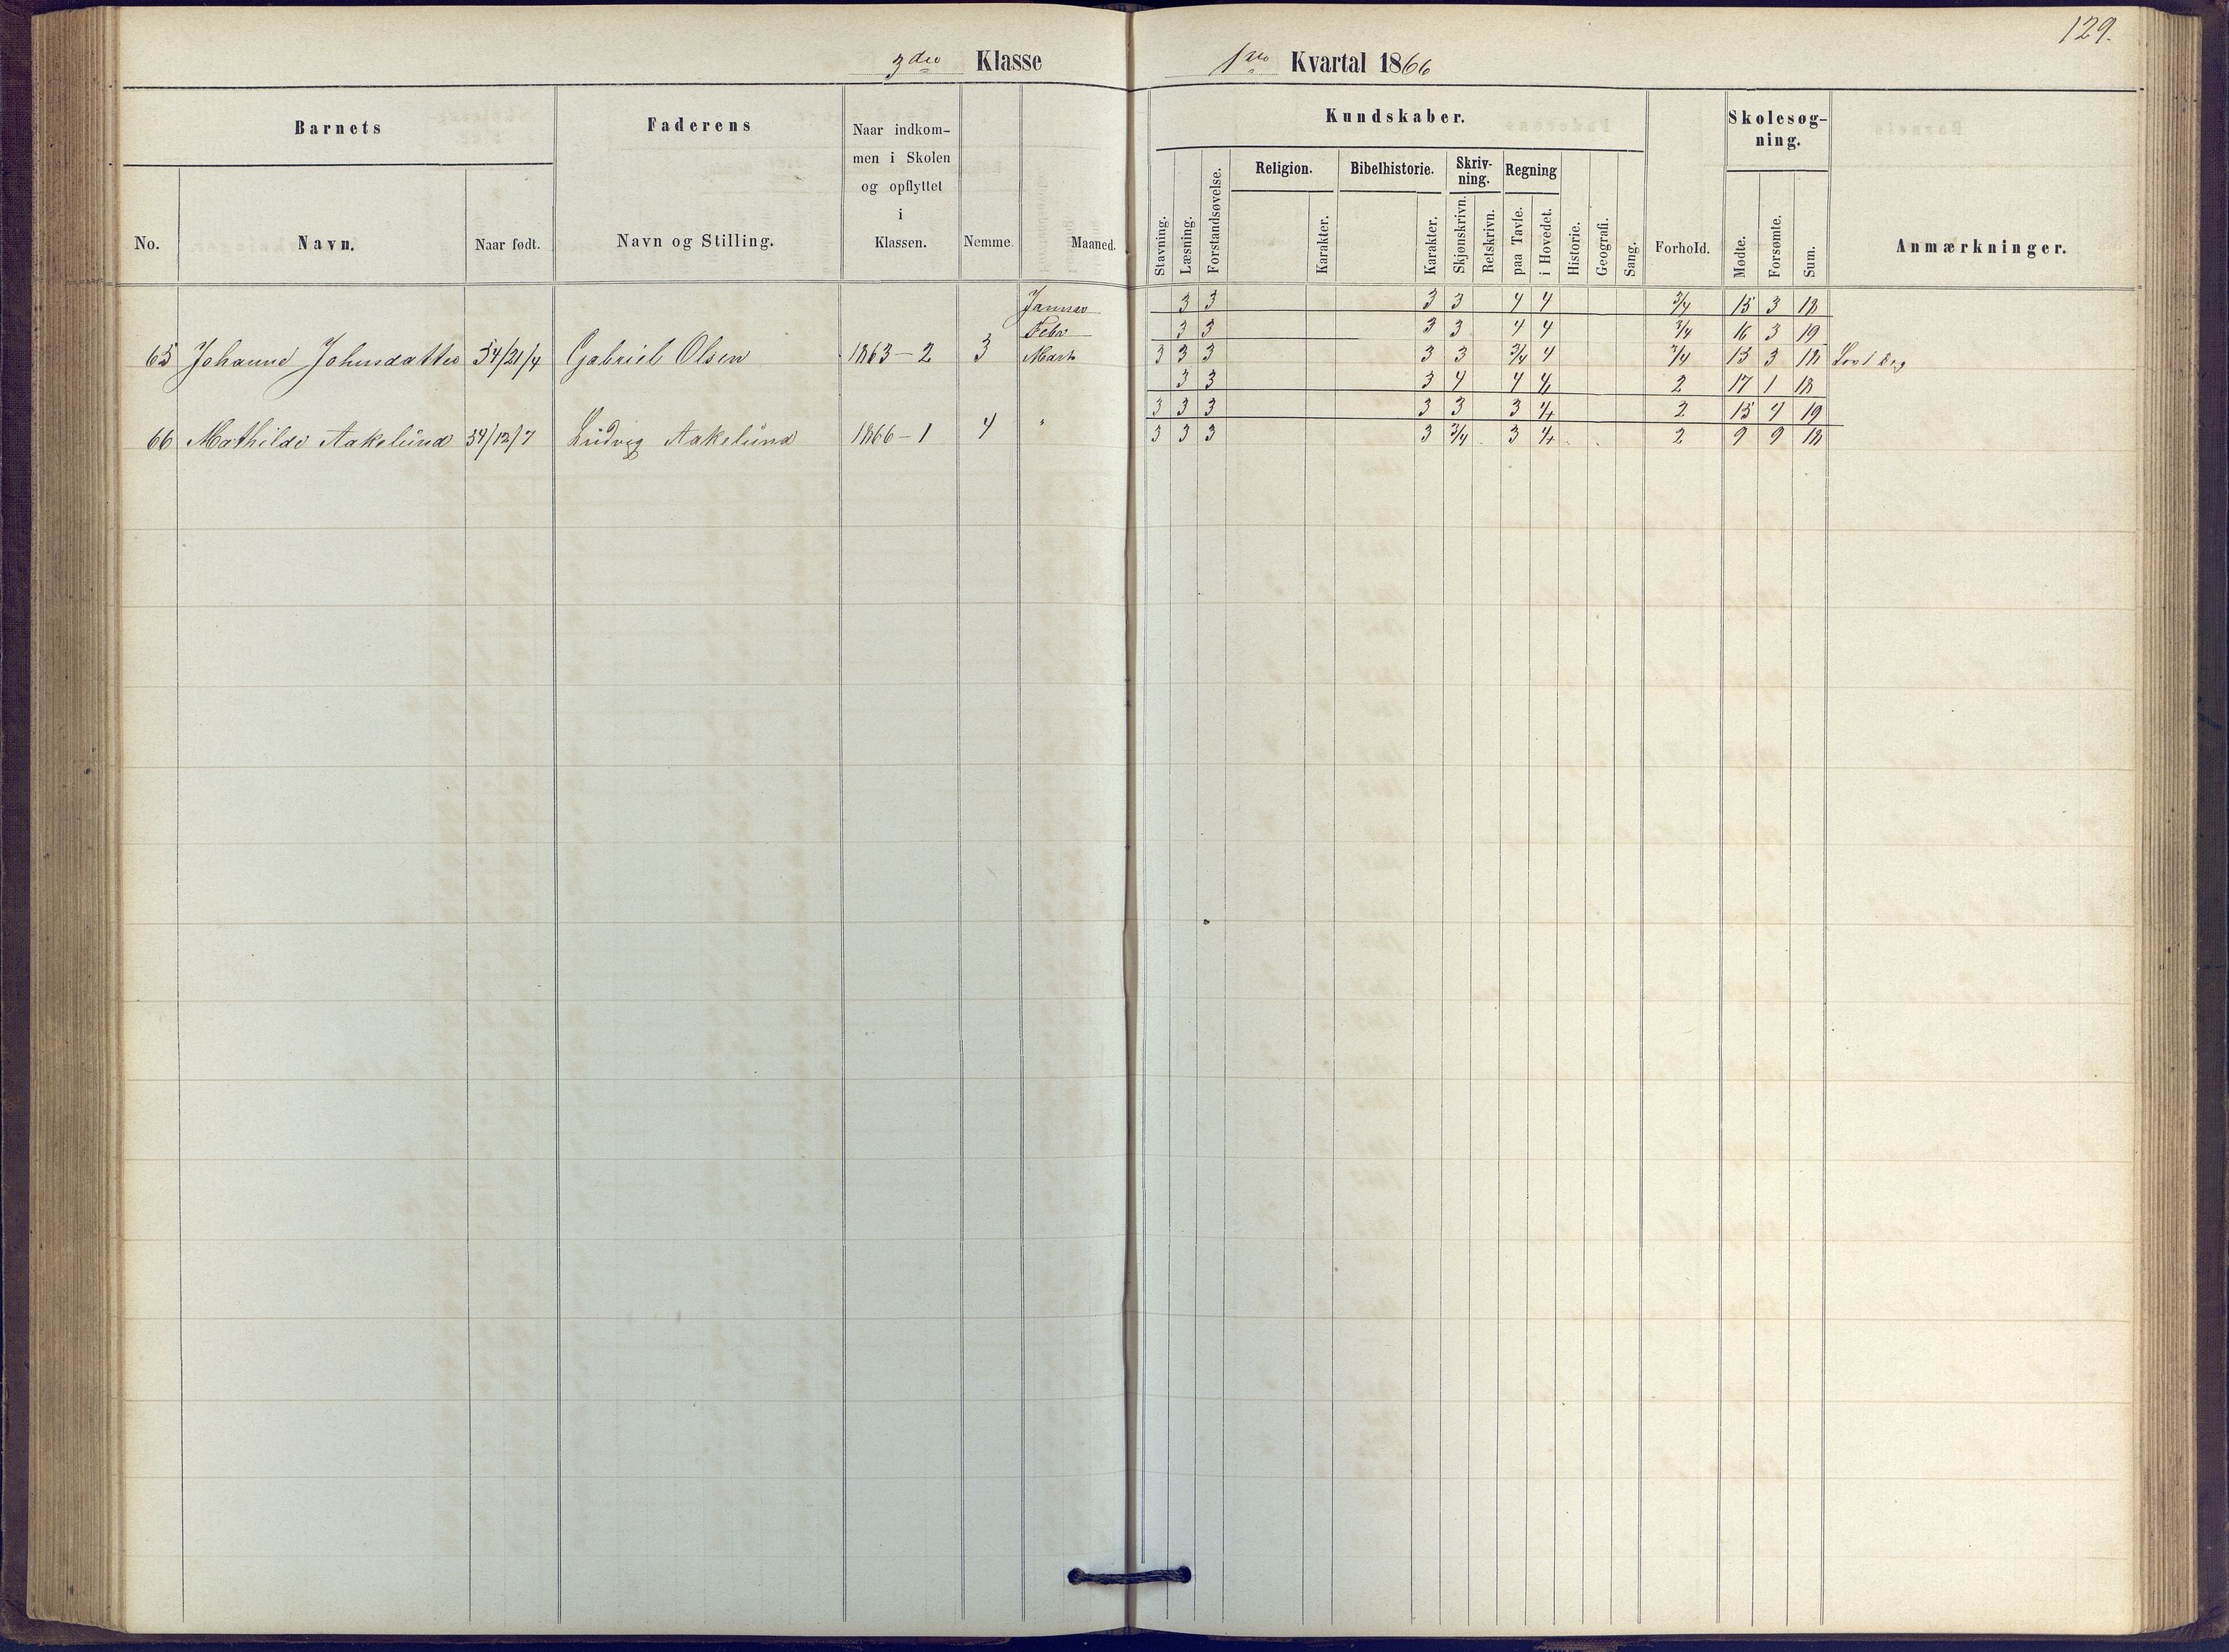 129.
3die Klasse
1ste Kvartal 1866
Barnets
Faderens
Naar indkom-
men i Skolen
og opflyttet
i
Klassen.
No.
Navn.
Naar født.
Navn og Stilling.
Nemme.
Maaned.
Kundskaber.
Skolesøg-
ning.
Stavning.
Læsning.
Forstandsøvelse.
Religion.
Karakter.
Bibelhistorie.
Karakter.
Skriv-
ning.
Skjønskrivn.
Retskrivn.
Regning
paa Tavle.
i Hovedet.
Historie.
Geografi.
Sang.
Forhold.
Mødte.
Forsømte.
Sum.
Anmærkninger.
Januar 3 3 3 3 4 4 3/4 15 3 18
Febr 3 3 3 3 4 4 3/4 16 3 19
65 Johanne Johnsdatter 54/21/4 Gabriel Olsen 1863-2 3 Marts 3 3 3 3 3 3/4 4 3/4 15 3 18
3 3 3 4 4 4 2 17 1 18
3 3 3 3 3 3 4 2 15 4 19
66 Mathilde Aakelund 54/12/7 Ludvig Aakelund 1866-1 4 " 3 3 3 3 3/4 3 4 2 9 9 18